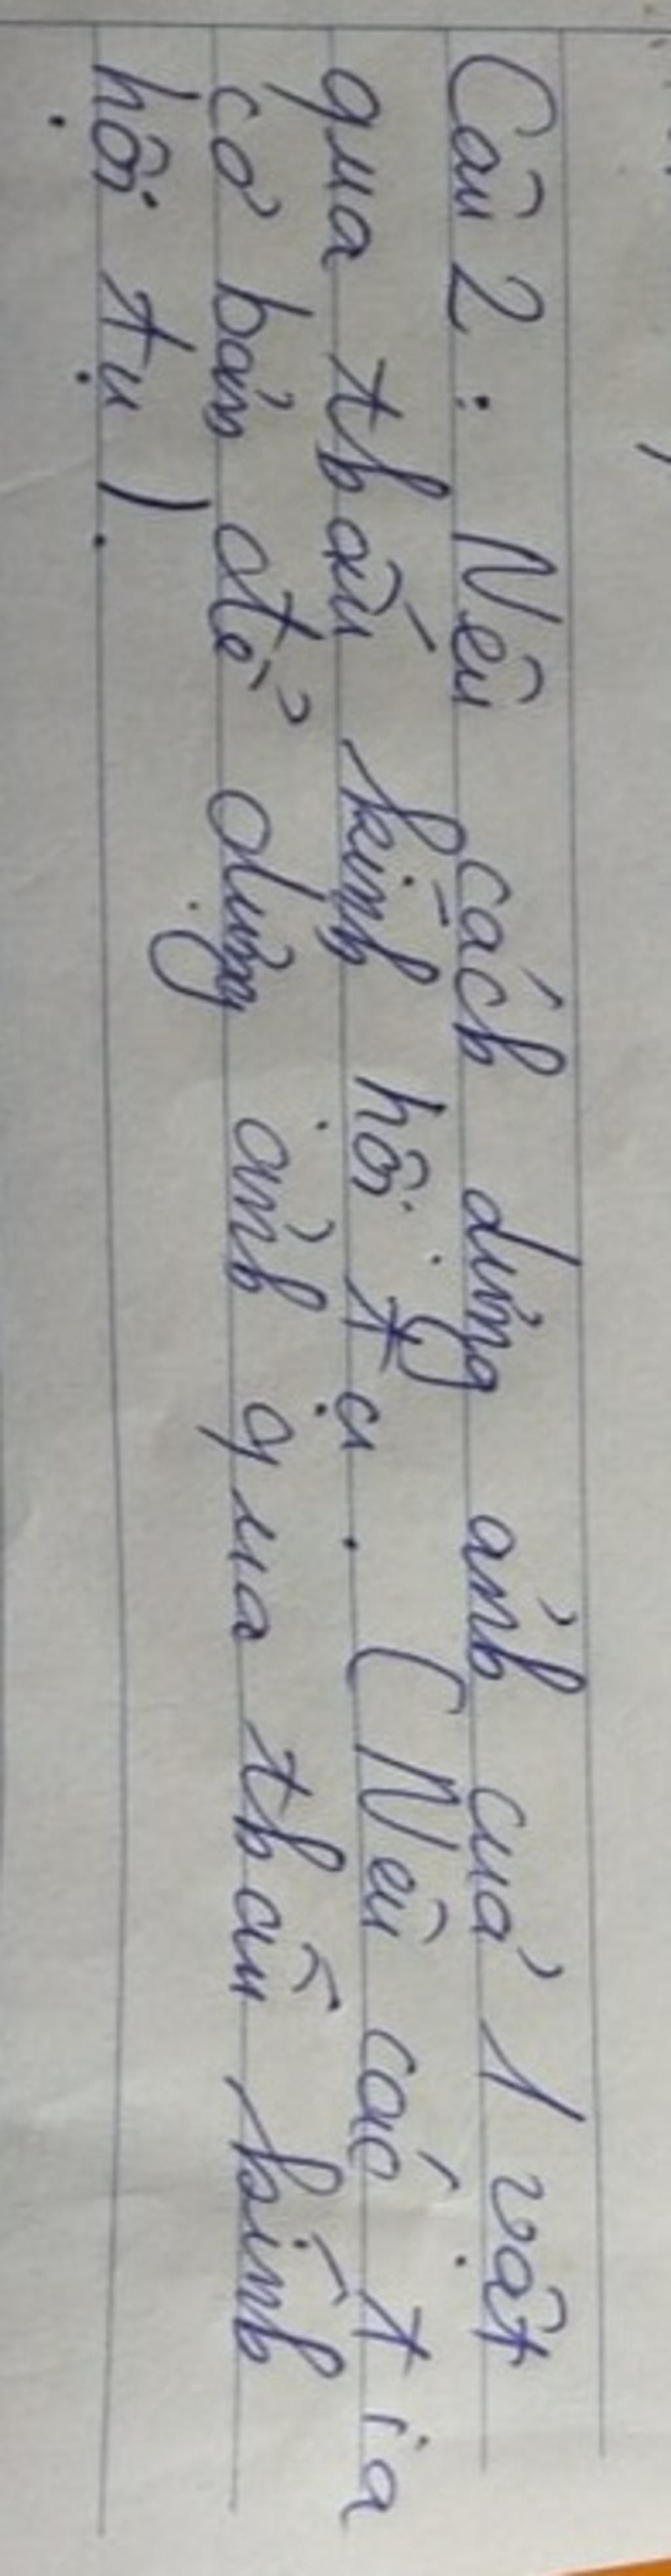 Câu 2 : Nêu cách dựng ảnh của 1 vật
qua thấu kính hội tụ . ( Nêu các tia
cơ bản để dựng ảnh qua thấu kính
hội tụ ) .